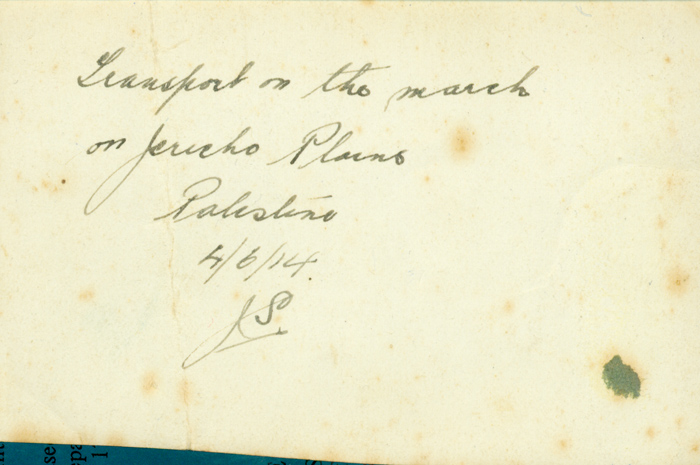 Transport on the march
on Jericho Plains
Palestine
4/6/14.
JS.
se
epa
1